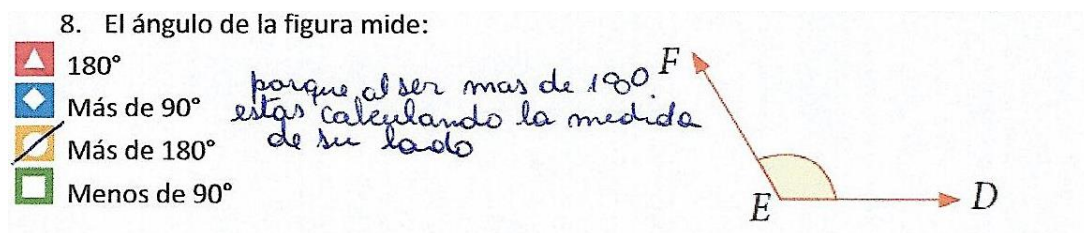 8. El ángulo de la figura mide:
180°
Más de 90°
Más de 180°
Menos de 90°
porque al ser mas de 180.
estas calculando la medida
de su lado
F
E
D